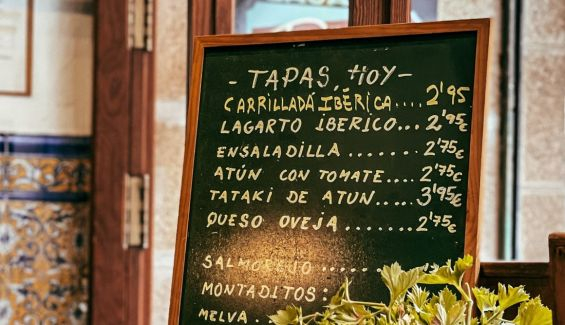 - TAPAS, HOY -
CARRILLADA IBÉRICA.... 2'95
LAGARTO IBERICO... 2'95€
ENSALADILLA ....... 2'75€
ATÚN CON TOMATE.... 2'75€
TATAKI DE ATUN.... 3'95€
QUESO OVEJA ....... 2'75€
SALMOREJO ......
MONTADITOS:
MELVA